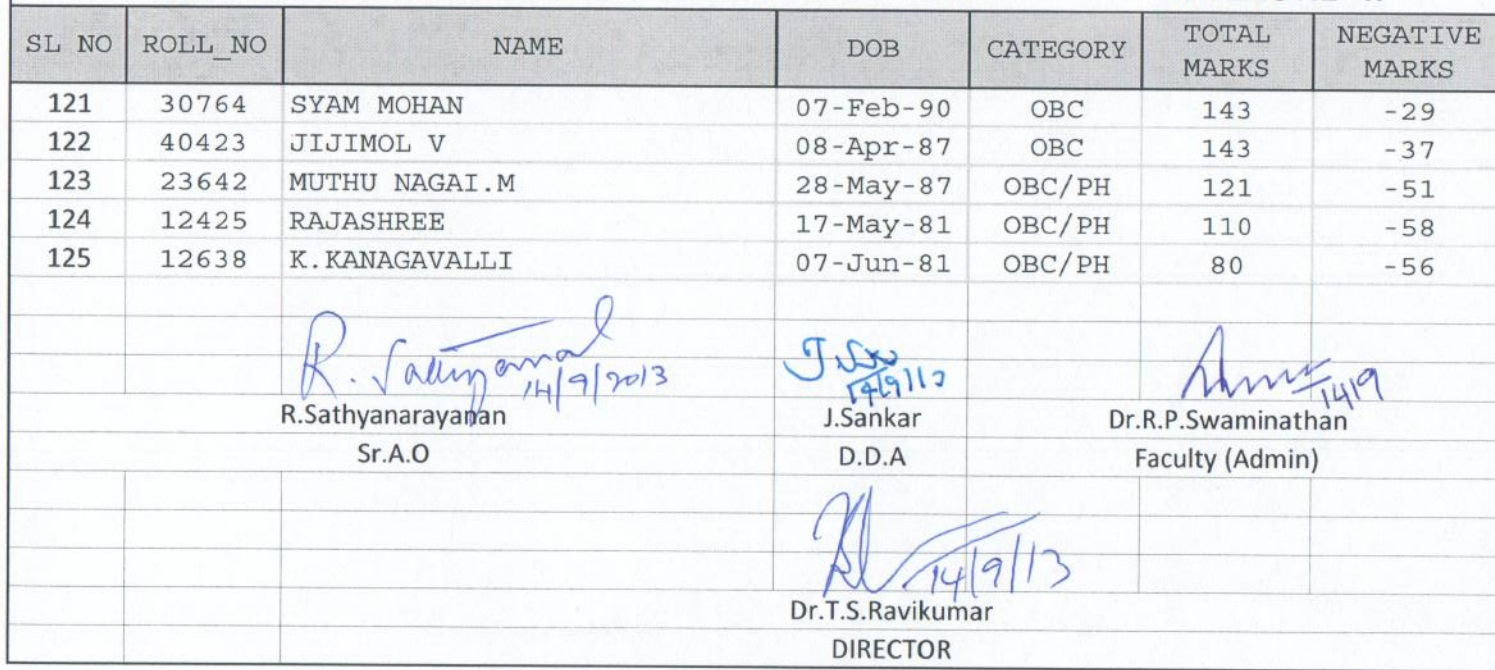 SL NO ROLL_NO NAME DOB CATEGORY TOTAL MARKS NEGATIVE MARKS
121 30764 SYAM MOHAN 07-Feb-90 OBC 143 -29
122 40423 JIJIMOL V 08-Apr-87 OBC 143 -37
123 23642 MUTHU NAGAI.M 28-May-87 OBC/PH 121 -51
124 12425 RAJASHREE 17-May-81 OBC/PH 110 -58
125 12638 K.KANAGAVALLI 07-Jun-81 OBC/PH 80 -56
14/9/2013 14/9/13 14/9
R.Sathyanarayanan J.Sankar Dr.R.P.Swaminathan
Sr.A.O D.D.A Faculty (Admin)
14/9/13
Dr.T.S.Ravikumar
DIRECTOR